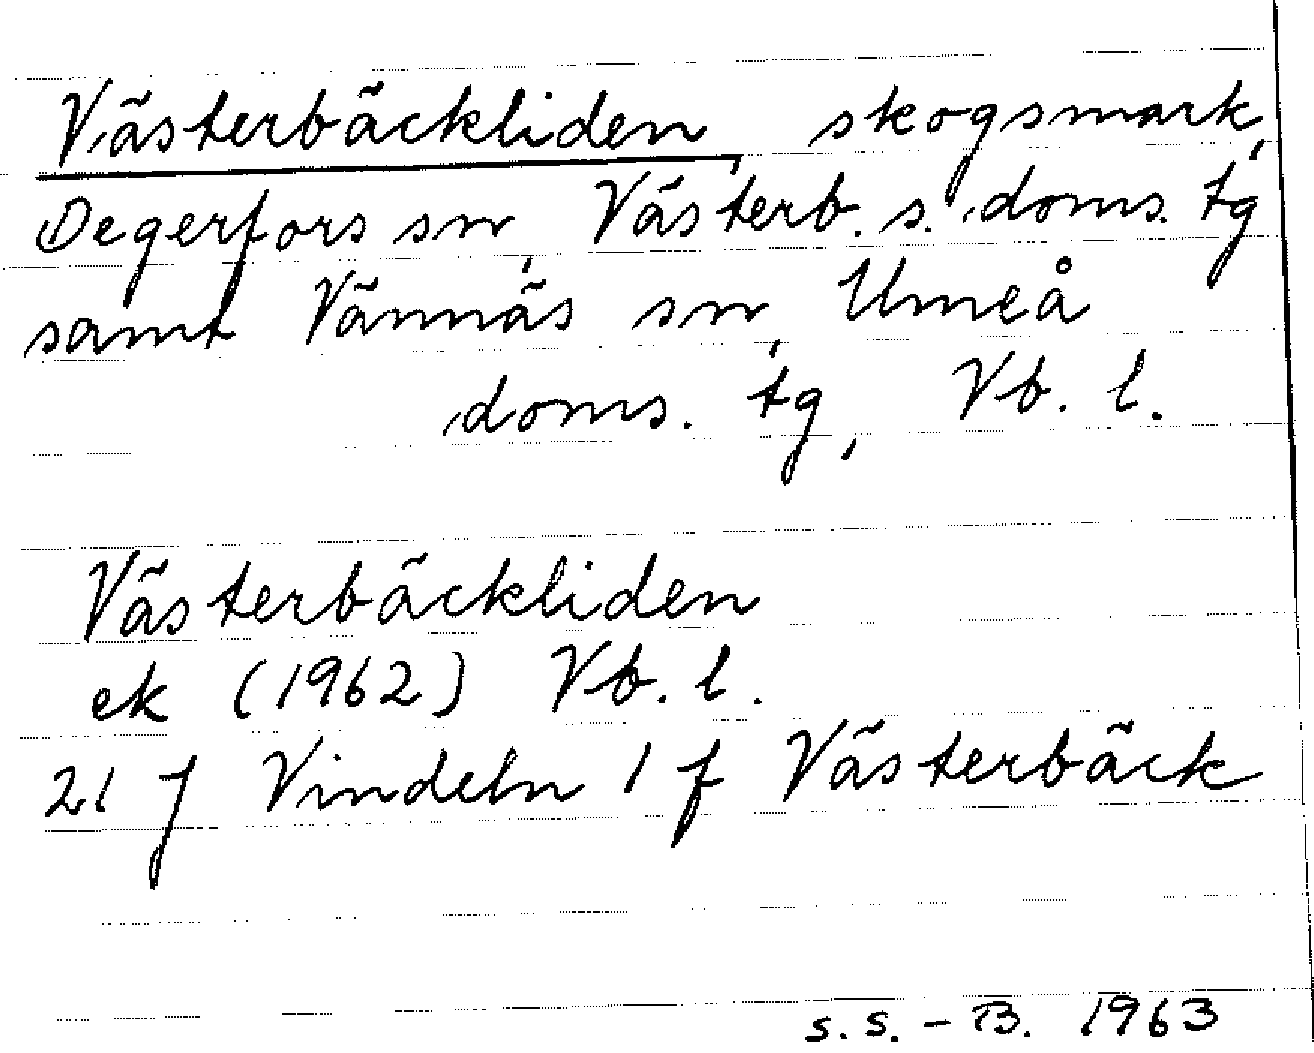 Västerbäckliden, skogsmark,
Degerfors sn, Västerb. s. doms. tg
samt Vännäs sn, Umeå
doms. tg, Vb. l.
Västerbäckliden
ek (1962) Vb. l.
21 J Vindeln 1 f Västerbäck
S.S. - B. 1963